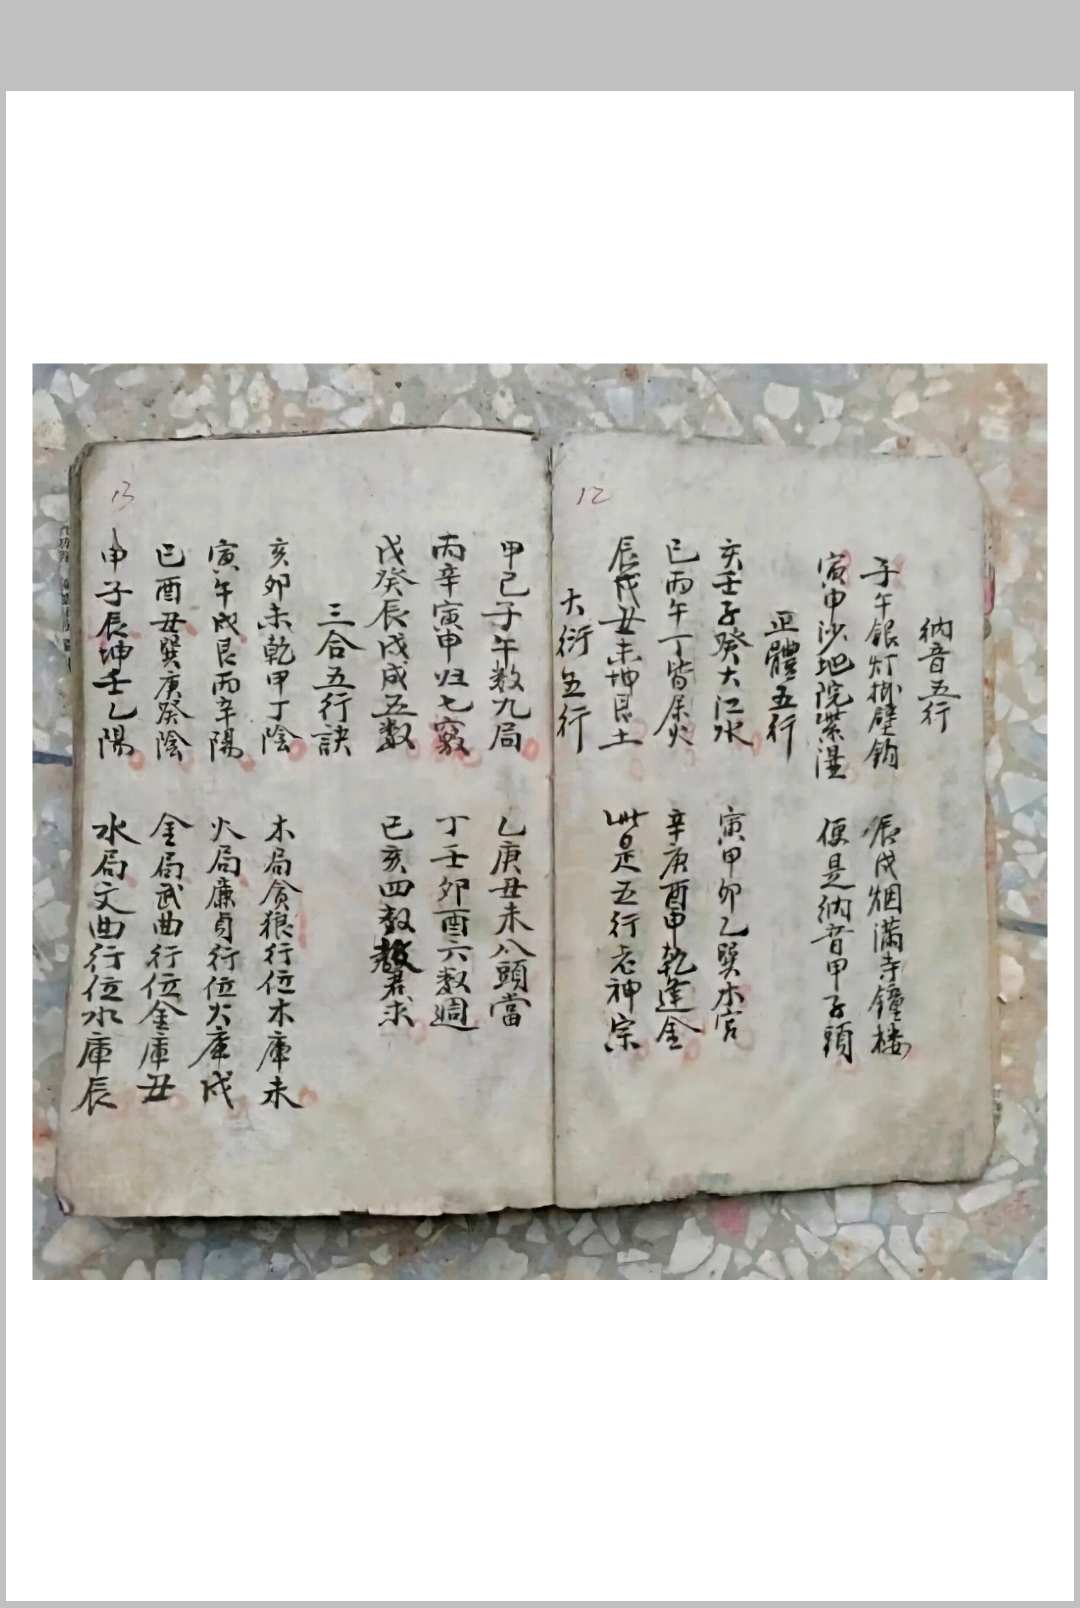 12
納音五行
子午銀灯掛壁鈎
辰戌烟滿寺鐘楼
寅申沙地院紫湿
便是納音甲子頭
正體五行
亥壬子癸大江水
寅甲卯乙巽木宮
巳丙午丁皆屬火
辛庚酉申乾逢金
辰戌丑未坤艮土
此是五行老神宗
大衍五行
13
甲己子午数九局
乙庚丑未八頭當
丙辛寅申归七窮
丁壬卯酉六数週
戊癸辰戌成五数
巳亥四数
三合五行訣
亥卯未乾甲丁陰
木局貪狼行位木庫未
寅午戌艮丙辛陽
火局廉貞行位火庫戌
巳酉丑巽庚癸陰
金局武曲行位金庫丑
申子辰坤壬乙陽
水局文曲行位水庫辰